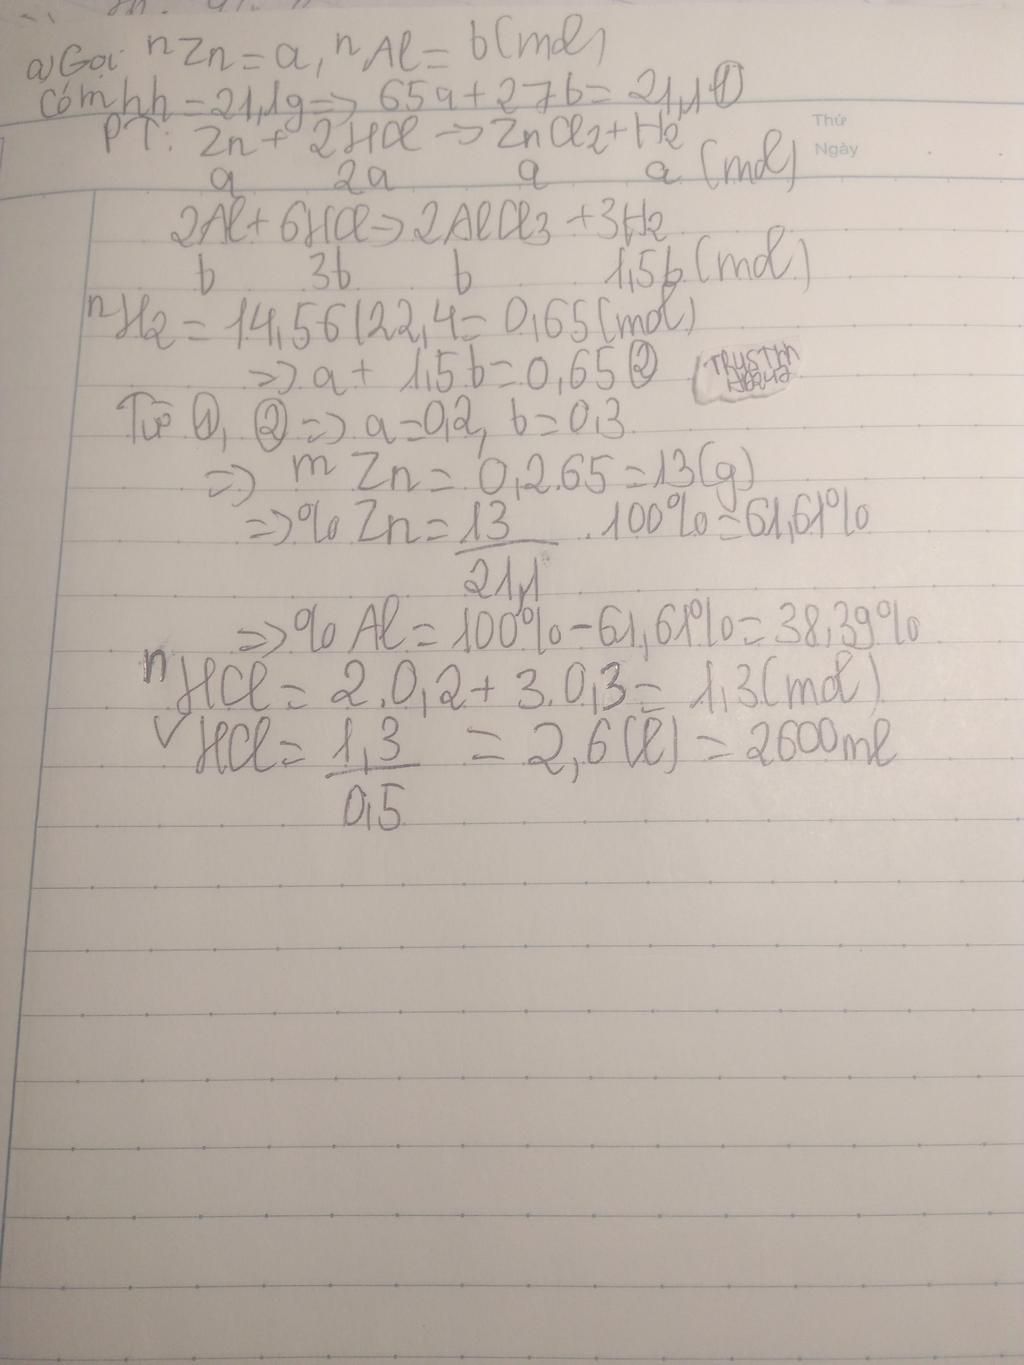 a) Gọi nZn = a, nAl = b(mol)
Có mhh = 21,1g => 65a + 27b = 21,1 ①
PT: Zn + 2HCl -> ZnCl2 + H2
a 2a a a (mol)
Thứ
Ngày
2Al + 6HCl -> 2AlCl3 + 3H2
b 3b b 1,5b (mol)
nH2 = 14,56/22,4 = 0,65(mol)
=> a + 1,5b = 0,65 ②
Từ ①, ② => a = 0,2, b = 0,3
=> mZn = 0,2.65 = 13(g)
=> % Zn = 13/21,1 . 100% = 61,61%
=> % Al = 100% - 61,61% = 38,39%
nHCl = 2.0,2 + 3.0,3 = 1,3(mol)
VHCl = 1,3/0,5 = 2,6(l) = 2600ml